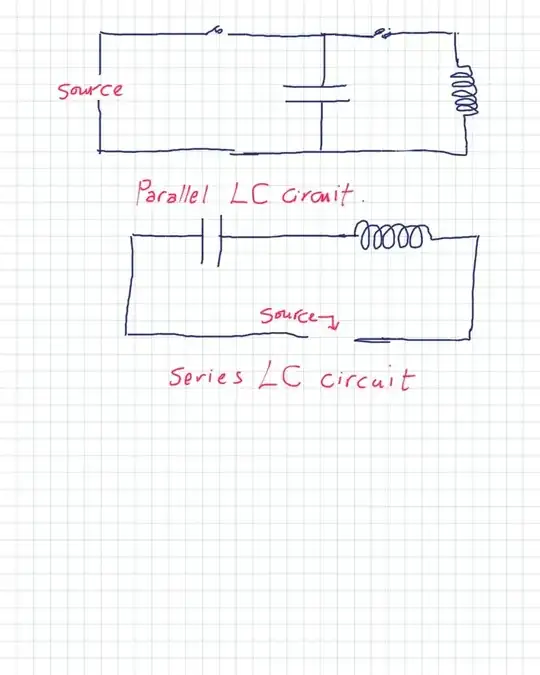 Source
Parallel LC Circuit.
Source
Series LC circuit